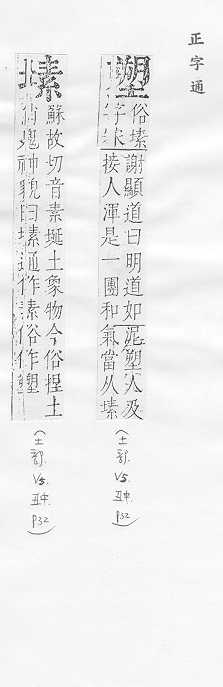 正字通
塑
俗塑
字宋
謝顯道曰明道如泥塑人及
接人渾是一團和氣當从塐
(土部. V5. 丑中. P32)
塐
蘇故切音素埏土象物今俗捏土
肖鬼神貌曰塐通作素俗作塑
(土部. V5. 丑中. P32)